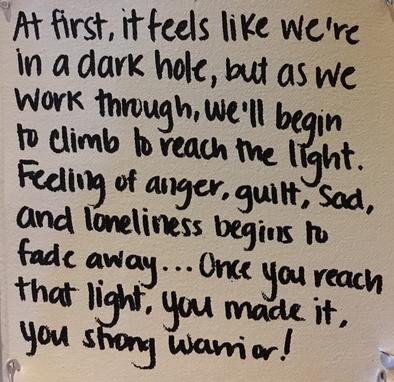 At first, it feels like we're
in a dark hole, but as we
work through, we'll begin
to climb to reach the light.
Feeling of anger, guilt, sad,
and loneliness begins to
fade away... Once you reach
that light, you made it,
you strong warrior!